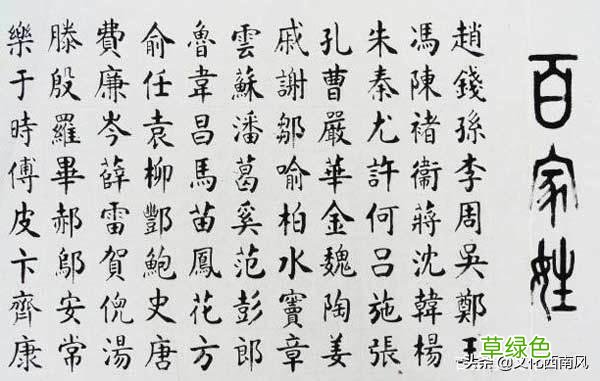 百家姓
趙錢孫李周吳鄭王
馮陳褚衞蔣沈韓楊
朱秦尤許何呂施張
孔曹嚴華金魏陶姜
戚謝鄒喻柏水竇章
雲蘇潘葛奚范彭郎
魯韋昌馬苗鳳花方
俞任袁柳酆鮑史唐
費廉岑薛雷賀倪湯
滕殷羅畢郝鄔安常
樂于時傅皮卞齊康
草绿色
头条 @文化西南风